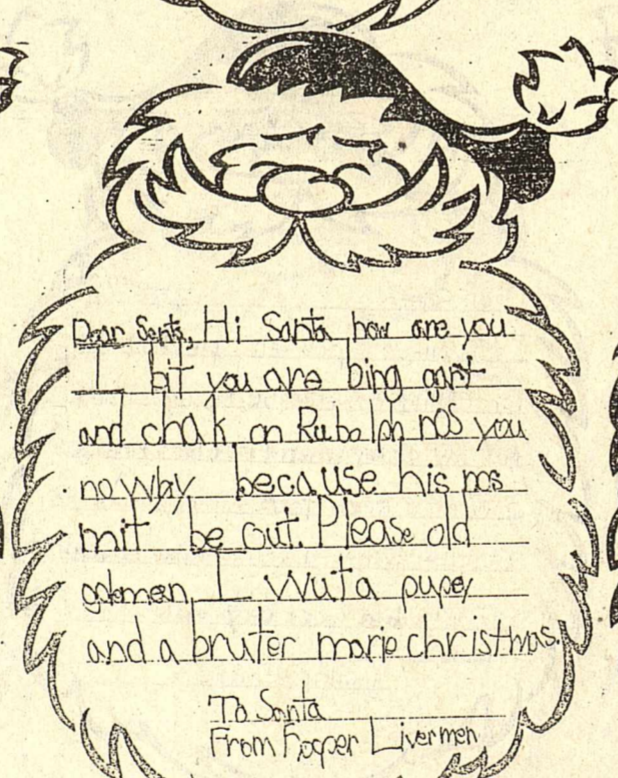 Dear Santa, Hi Santa how are you
I bit you are bing gart
and chak on Rubolph nos you
no why because his nos
mit be out. Please old
gakmen, I wuta pupey
and a bruter marie christmas.
To Santa
From Hooper Livermen